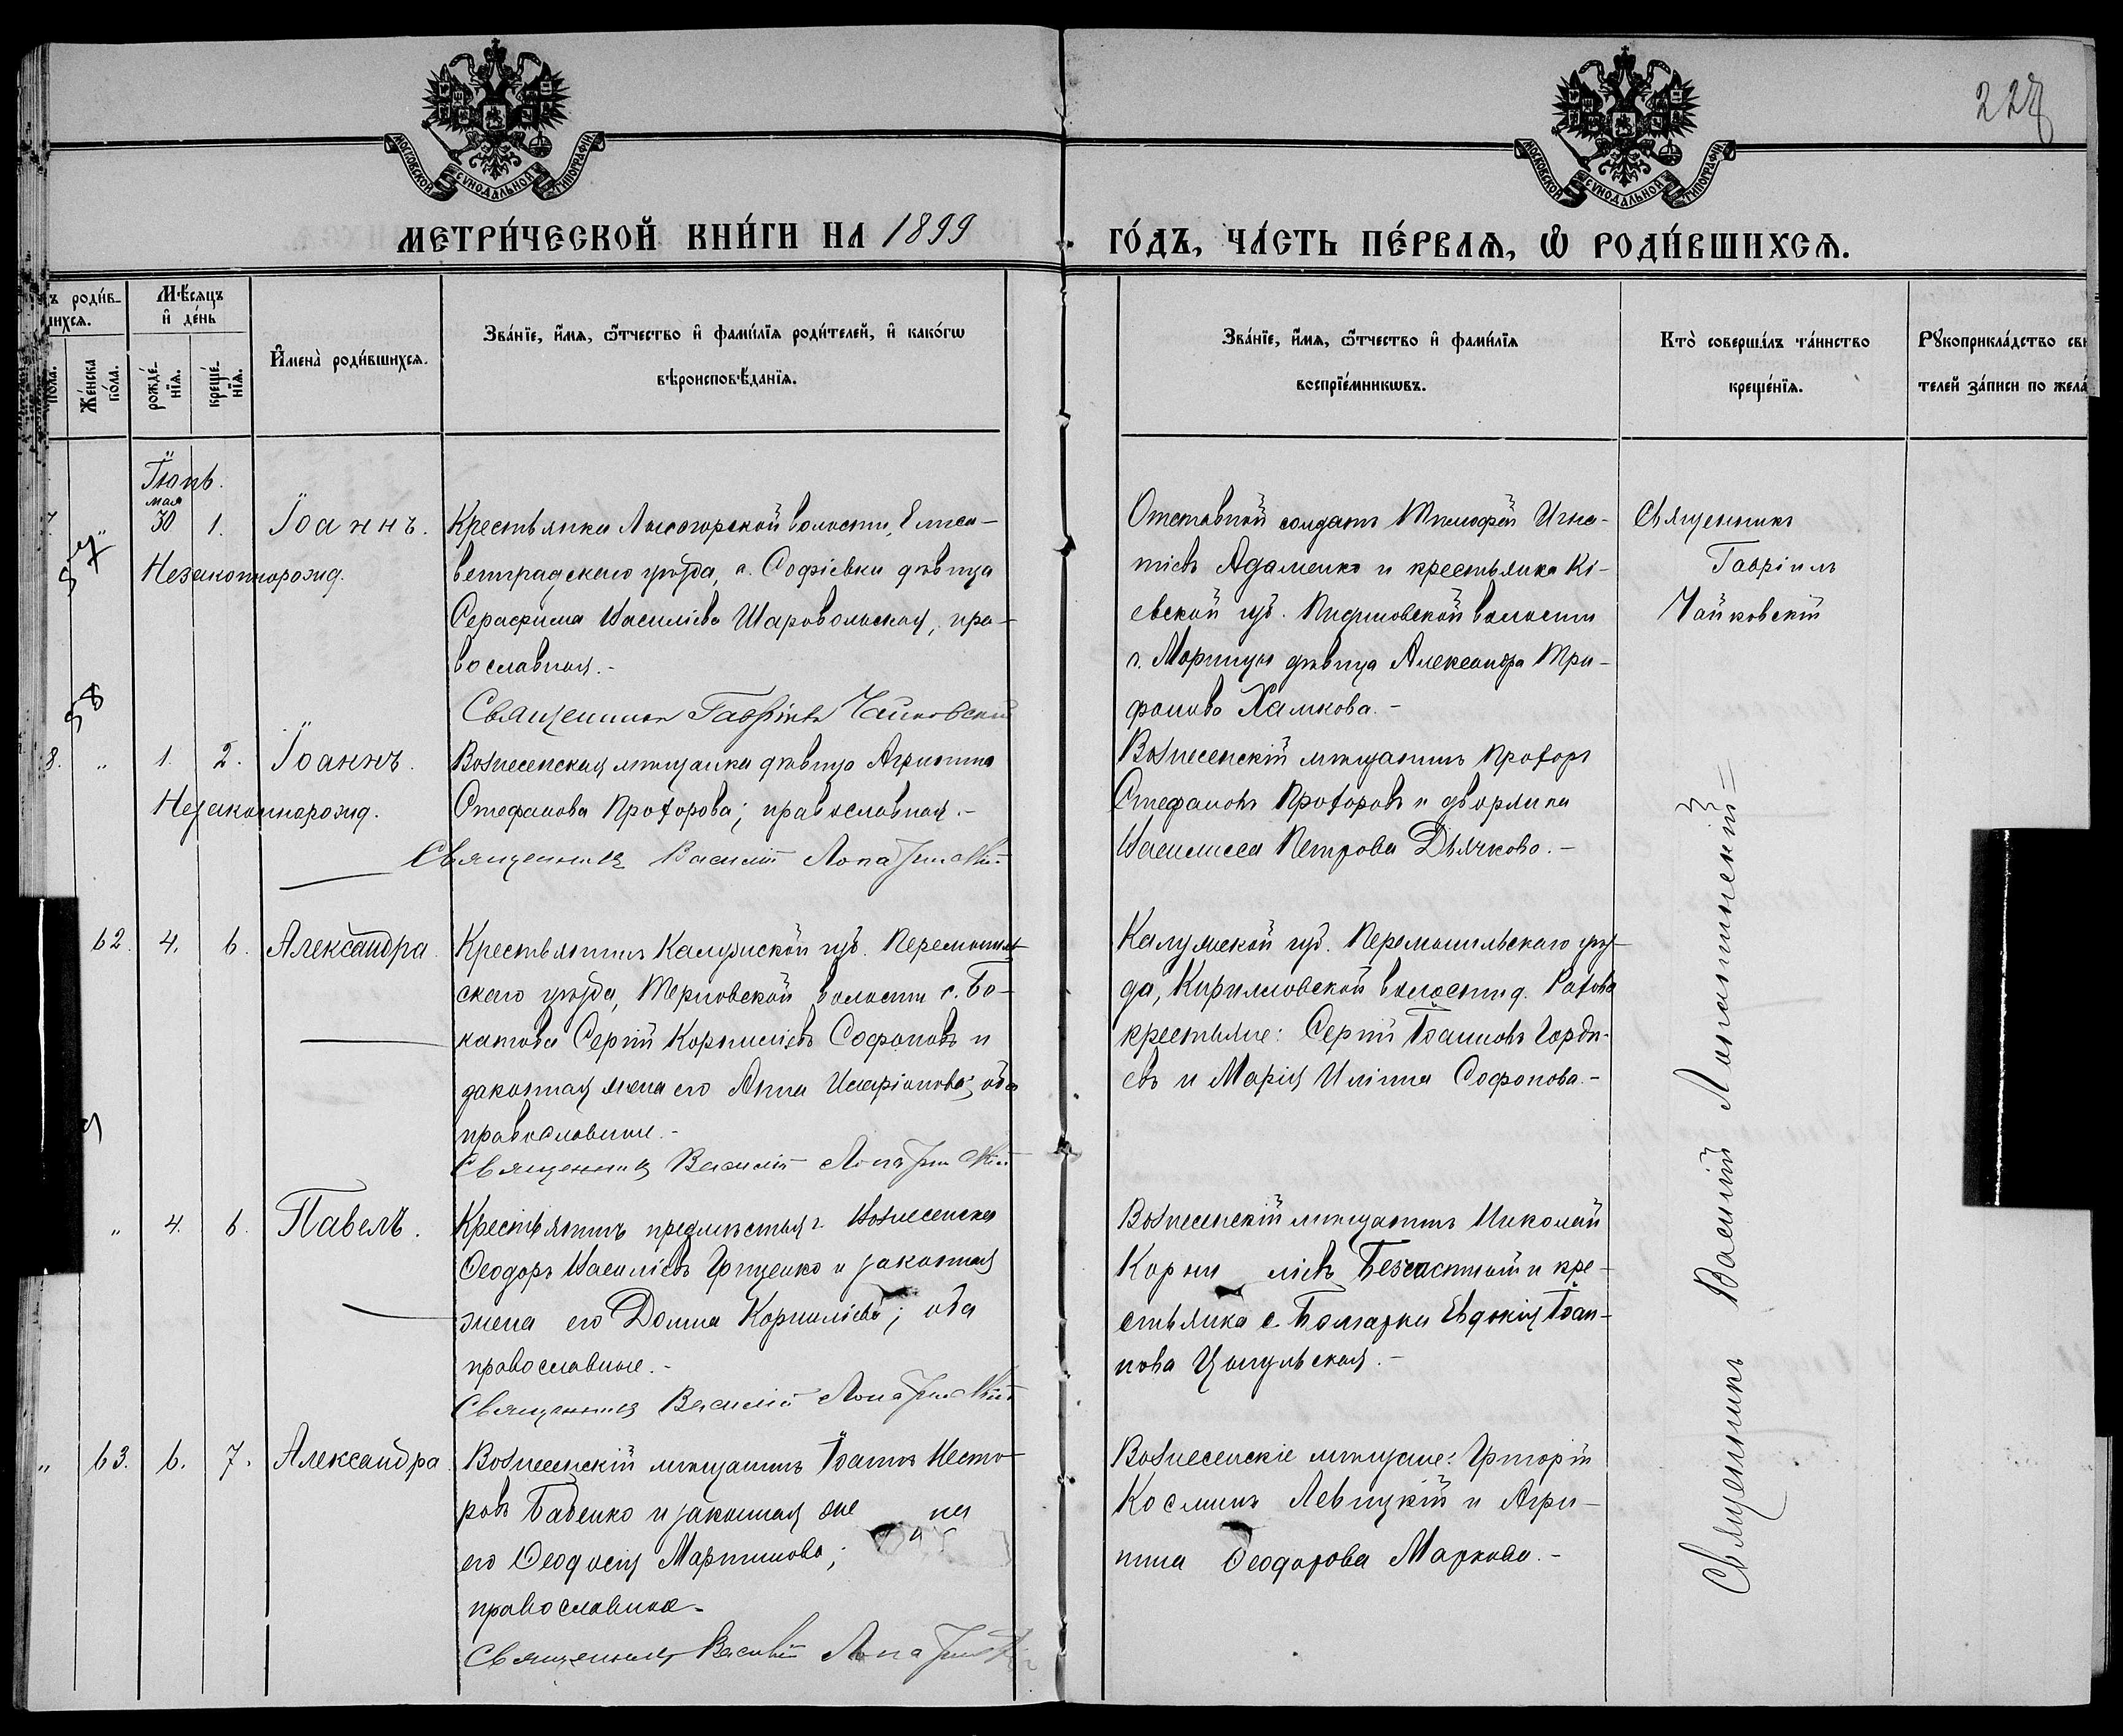 227
МОСКОВСКОЙ СѴНОДАЛЬНОЙ ТИПОГРАФІИ
МОСКОВСКОЙ СѴНОДАЛЬНОЙ ТИПОГРАФІИ
МЕТРИ́ЧЕСКОЙ КНИ́ГИ НА 1899
ГО́ДЪ, ЧА́СТЬ ПЕ́РВАѦ, Ѡ РОДИ́ВШИХСѦ.
ъ роди́в-
шихсѧ.
пола.
Же́нска по́ла.
Мѣ́сѧцъ и де́нь
рожде́-нїѧ.
креще́-нїѧ.
Имена̀ роди́вшихсѧ.
Зва́нїе, и́мѧ, ѻ́тчество и фами́лїѧ роди́телей, и како́гѡ
вѣроисповѣ́данїѧ.
Зва́нїе, и́мѧ, ѻ́тчество и фами́лїѧ
воспрїе́мникѡвъ.
Кто̀ соверша́лъ та́инство
креще́нїѧ.
Рꙋкоприкла́дство сви
телей за́писи по жела́
Іюнь.
мая
57
30 1. Іоаннъ.
Незаконнорожд.
Крестьянка Лысогорской волости, Елиса-
ветградскаго уѣзда, с. Софіевки дѣвица
Серафима Василіева Шаровольская, пра-
вославная.-
Священник Гавріилъ Чайковскій
Отставной солдатъ Тимофей Игна-
тіевъ Адаменко и крестьянка Кі-
евской губ. волости
с. Моринцы дѣвица Александра Три-
фонова Халкова.-
Священникъ
Гавріилъ
Чайковскій
58
8. " 1. 2. Іоаннъ.
Незаконнорожд.
Вознесенская мѣщанка дѣвица Агрипина
Стефанова Прохорова; православная.-
Священникъ Василій Лопатинскій
Вознесенскій мѣщанинъ Прохоръ
Стефановъ Прохоровъ и дворянка
Василисса Петрова Дьячкова.-
62. 4. 6. Александра.
Крестьянинъ Калужской губ. Перемышль-
скаго уѣзда, волости с. Бо-
катова Сергій Корниліевъ Софоновъ и
законная жена его Анна Иларіонова; оба
православные.-
Священникъ Василій Лопатинскій
Калужской губ. Перемышльскаго уѣз-
да, Кирилловской волости д. Рахова
крестьяне: Сергій Іоанновъ Горде-
евъ и Марія Иліина Софонова.-
" 4. 6. Павелъ.
Крестьянинъ предмѣстья г. Вознесенска
Ѳеодоръ Василіевъ Гриценко и законная
жена его Домна Корниліева; оба
православные.-
Священникъ Василій Лопатинскій
Вознесенскій мѣщанинъ Николай
Корниліевъ Безчастный и кре-
стьянка с. Болгарки Евдокія Іоан-
нова Цыпульская.-
" 63. 6. 7. Александра.
Вознесенскій мѣщанинъ Іоаннъ Несто-
ровъ Бабенко и законная жена
его Ѳеодосія Мартинова;
православные.
Священникъ Василій Лопатинскій
Вознесенскіе мѣщане: Григорій
Косминъ Левицкій и Агри-
пина Ѳеодорова Маркова.-
Священникъ Василій Лопатинскій